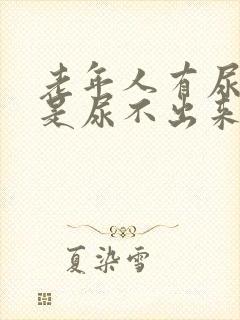 老年人有尿
是尿不出来
夏染雪